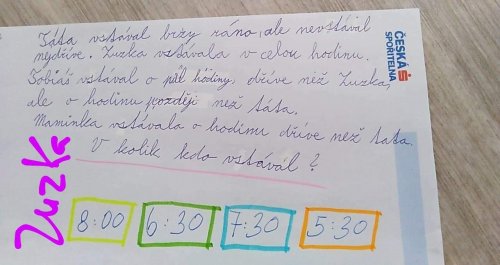 Táta vstával brzy ráno, ale nevstával
nejdříve. Zuzka vstávala v celou hodinu.
Tobiáš vstával o půl hodiny, dříve než Zuzka,
ale o hodinu později než táta.
Maminka vstávala o hodinu dříve než tata.
V kolik kdo vstával?
Zuzka
8:00 6:30 7:30 5:30
ČESKÁ
SPOŘITELNA